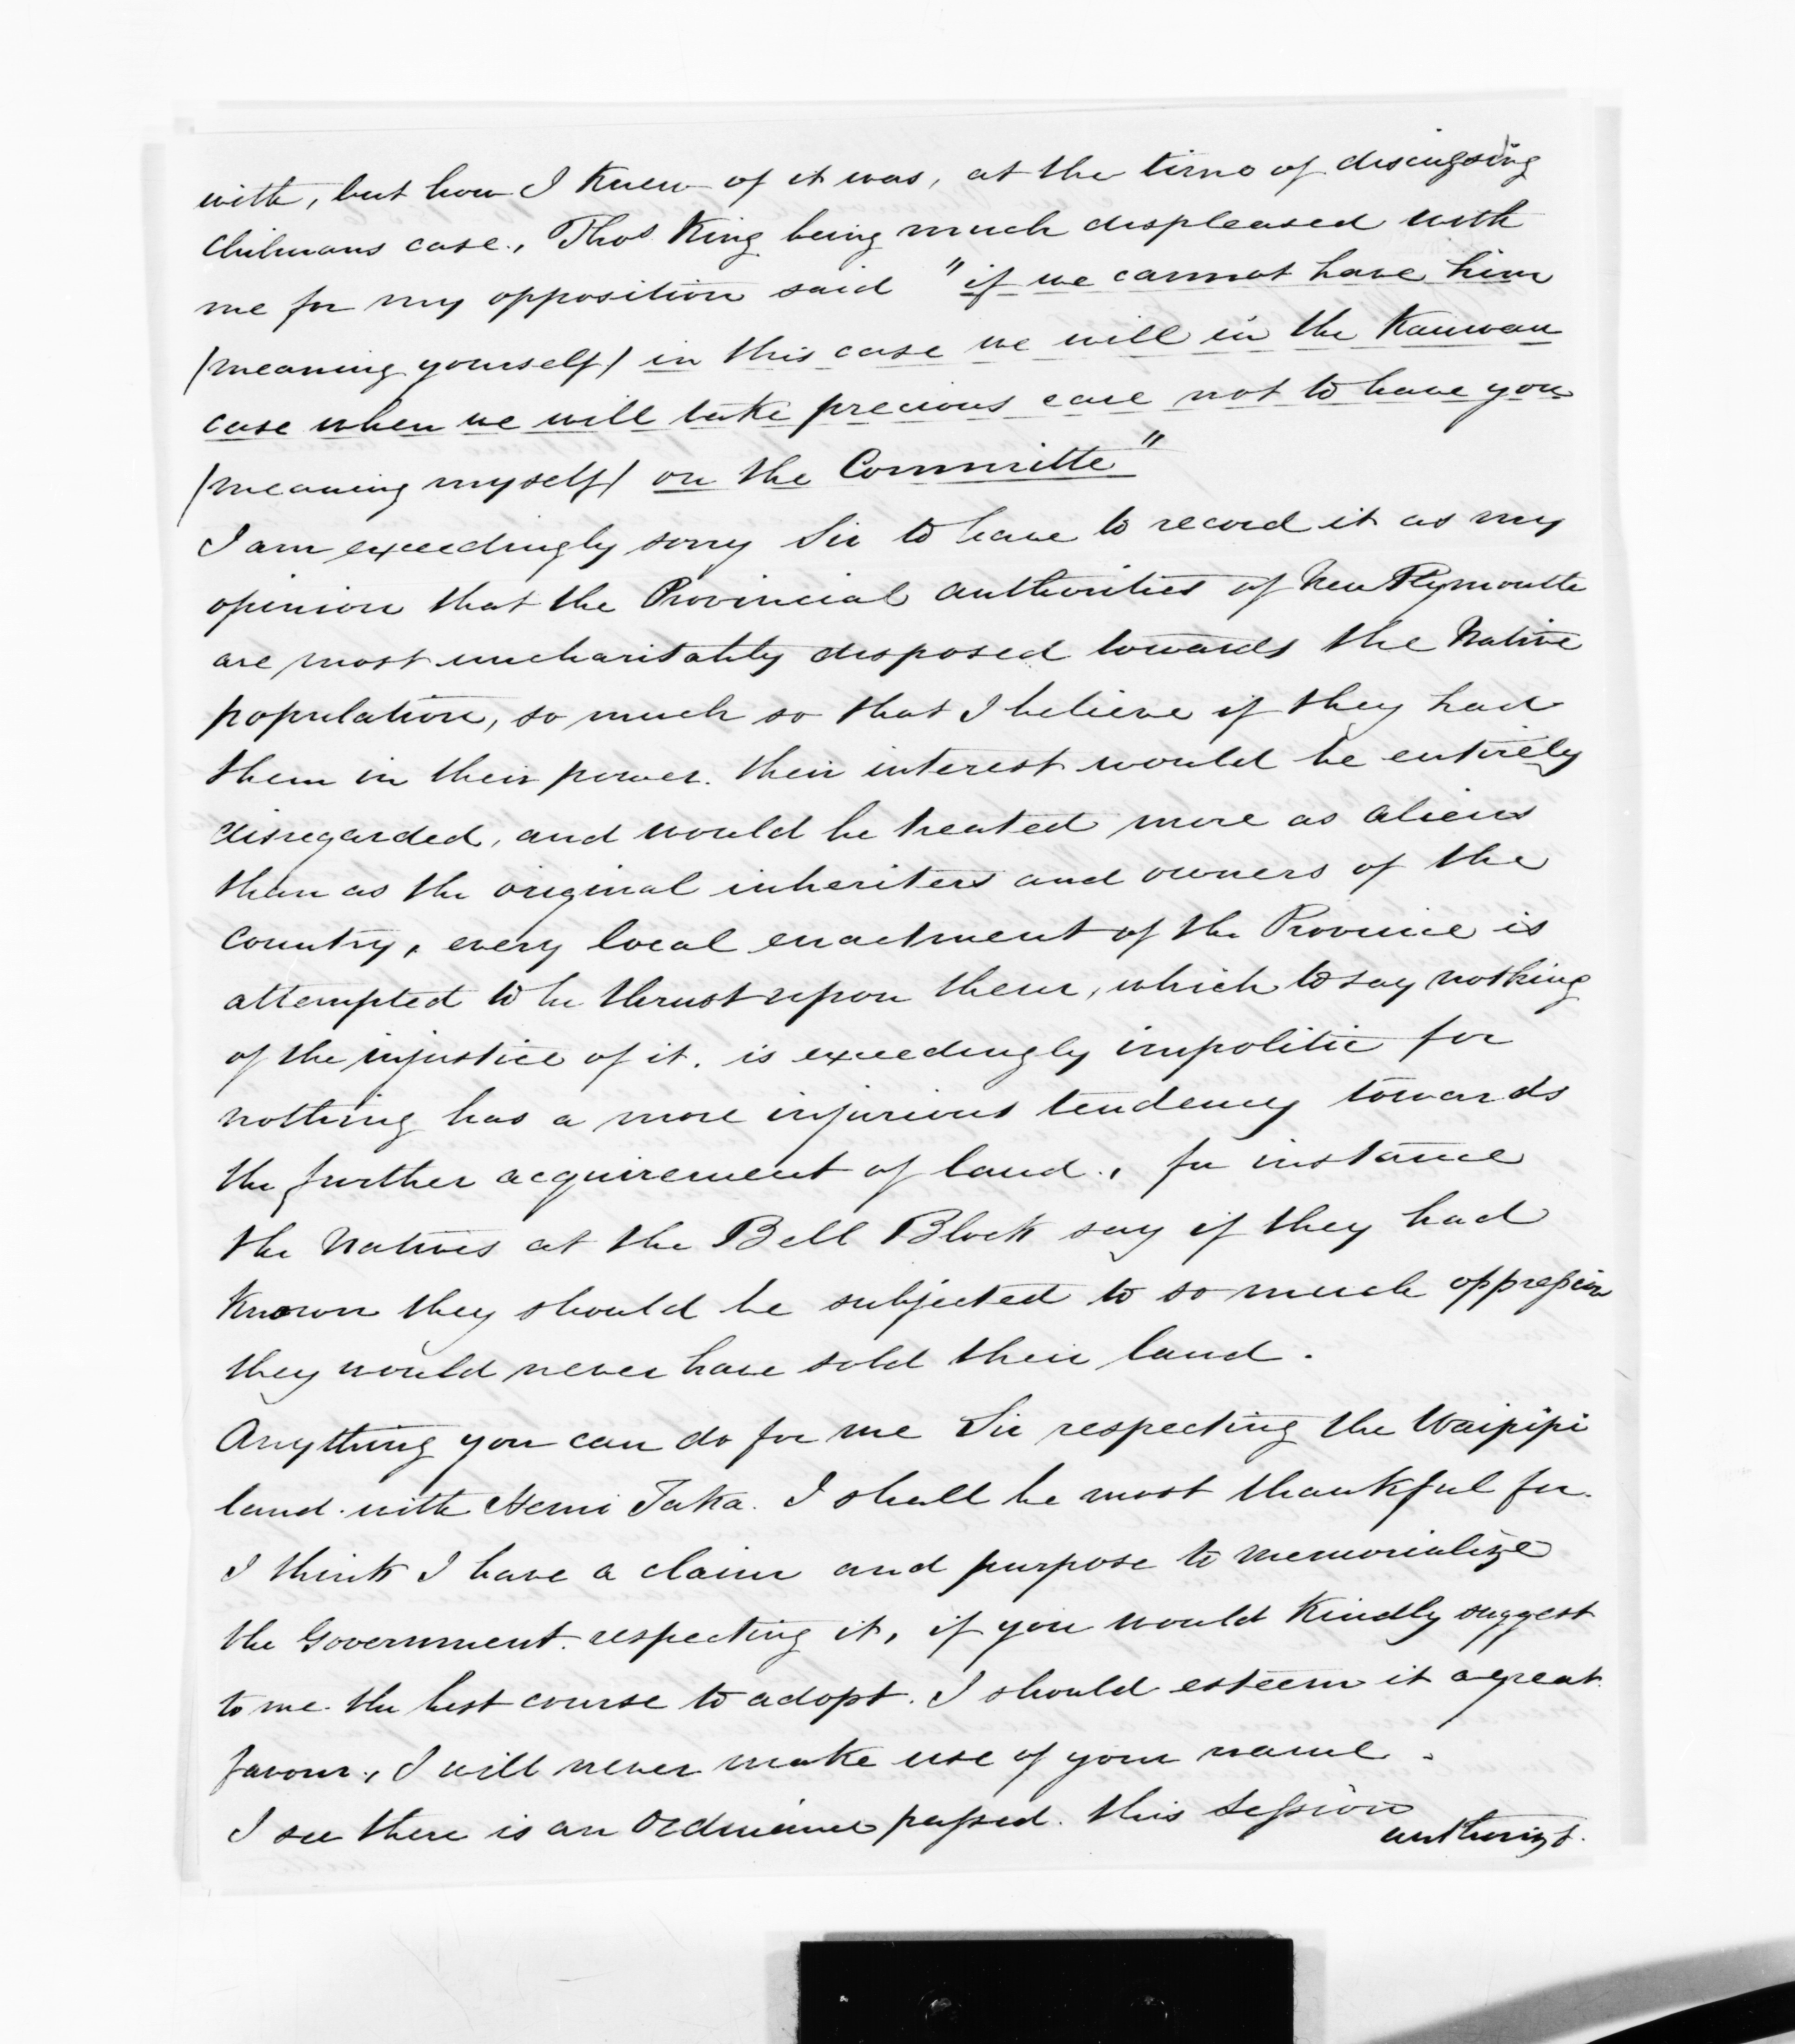 with, but how I knew of it was, at the time of discussing
Chilmans case., Thos King being much displeased with
me for my opposition said "if we cannot have him
(meaning yourself) in this case we will in the Kauwau
case when we will take precious care not to have you
(meaning myself) on the Committe"
I am exceedingly sorry Sir to have to record it as my
opinion that the Provincial authorities of New Plymouth
are most uncharitably disposed towards the Native
population, so much so that I believe if they had
them in their power. their interest would be entirely
disregarded, and would be treated more as aliens
than as the original inheriters and owners of the
Country, every local enactment of the Province is
attempted to be thrust upon them, which to say nothing
of the injustice of it. is exceedingly impolitic for
nothing has a more injurious tendency towards
the further acquirement of land., for instance
the Natives at the Bell Block say if they had
Known they should be subjected to so much oppression
they would never have sold their land.
Anything you can do for me Sir respecting the Waipipi
land. with Hemi Taka. I shall be most thankful for.
I think I have a claim and purpose to memorialize
the Government. respecting it, if you would Kindly suggest
to me. the best course to adopt. I should esteem it a great
favour., I will never make use of your name.
I see there is an Ordinance passed. this Session